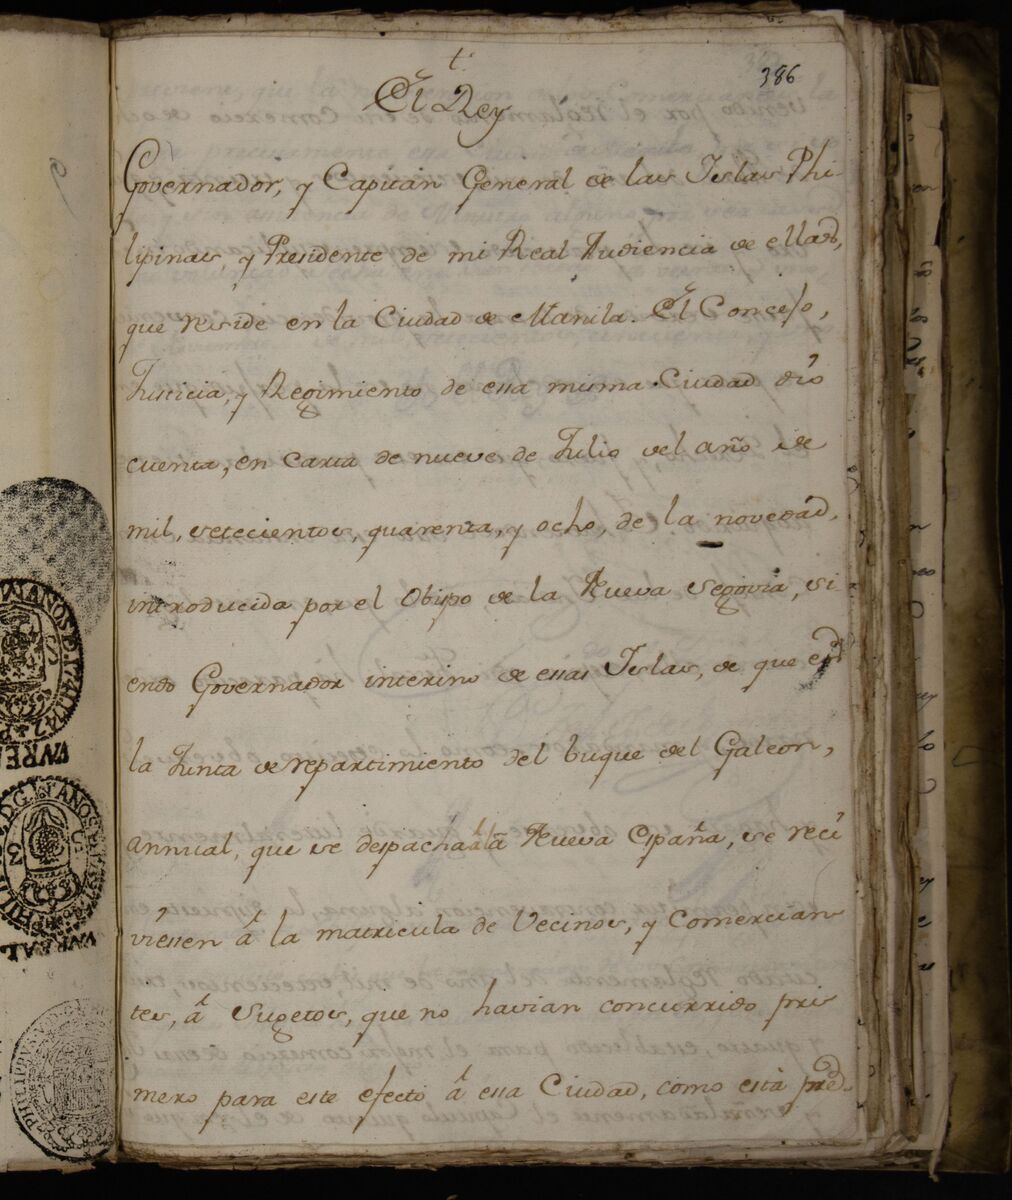 386
El Rey
Governador, y Capitan General de las Islas Phi-
lipinas y Presidente de mi Real Audiencia de ellas,
que reside en la Ciudad de Manila. El Concejo,
Justicia, y Regimiento de essa misma Ciudad dió
cuenta, en carta de nueve de Julio del año de
mil, setecientos, quarenta, y ocho, de la novedad,
introducida por el Obispo de la Nueva Segovia, si
endo Governador interino de essas Islas, de que en
la Junta de repartimiento del buque del Galeon,
annual, que se despacha á la Nueva España, se reci
viessen á la matricula de Vecinos, y Comercian
tes, á Sugetos, que no havian concurrido pri
mero para este efecto á essa Ciudad, como está pre